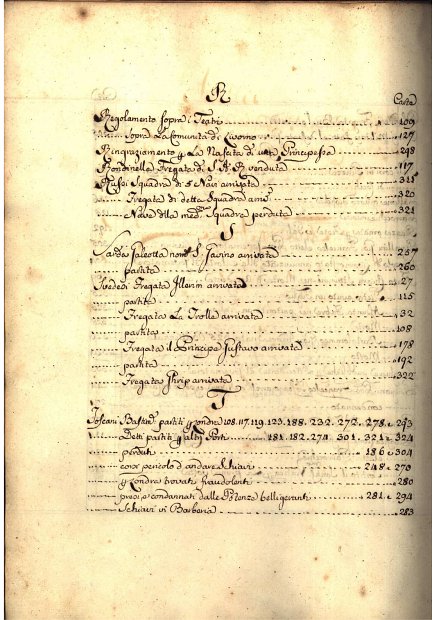 R
Carte
Regolamento sopra i Teatri 109
Sopra La Comunità di Livorno 127
Ringraziamento La Nascita di Principessa 248
Rondinella Fregata di S. A. R. venduta 117
Russi Squadra di 5 Navi arrivata 315
Fregata di detta Squadra 320
Nave della Squadra perduta 321
S
Sarda Galeotta nom. S. Gavino arrivata 257
partita 260
Svedesi Fregata Illerim arrivata 27
partita 115
Fregata La Trolle arrivata 32
partita 108
Fregata il Principe Gustavo arrivata 178
partita 192
Fregata arrivata 322
T
Toscani Bastim. partiti Londra 108. 117. 119. 123. 188. 232. 272. 278. e 293
Detti partiti altri Porti 181. 182. 274. 301. 321. e 324
perduti 186 e 304
corsi pericolo d'andare Schiavi 248. e 270
Londra trovati fraudolenti 280
presi, e condannati dalle Potenze belligeranti 281. e 294
Schiavi in Barberia 283